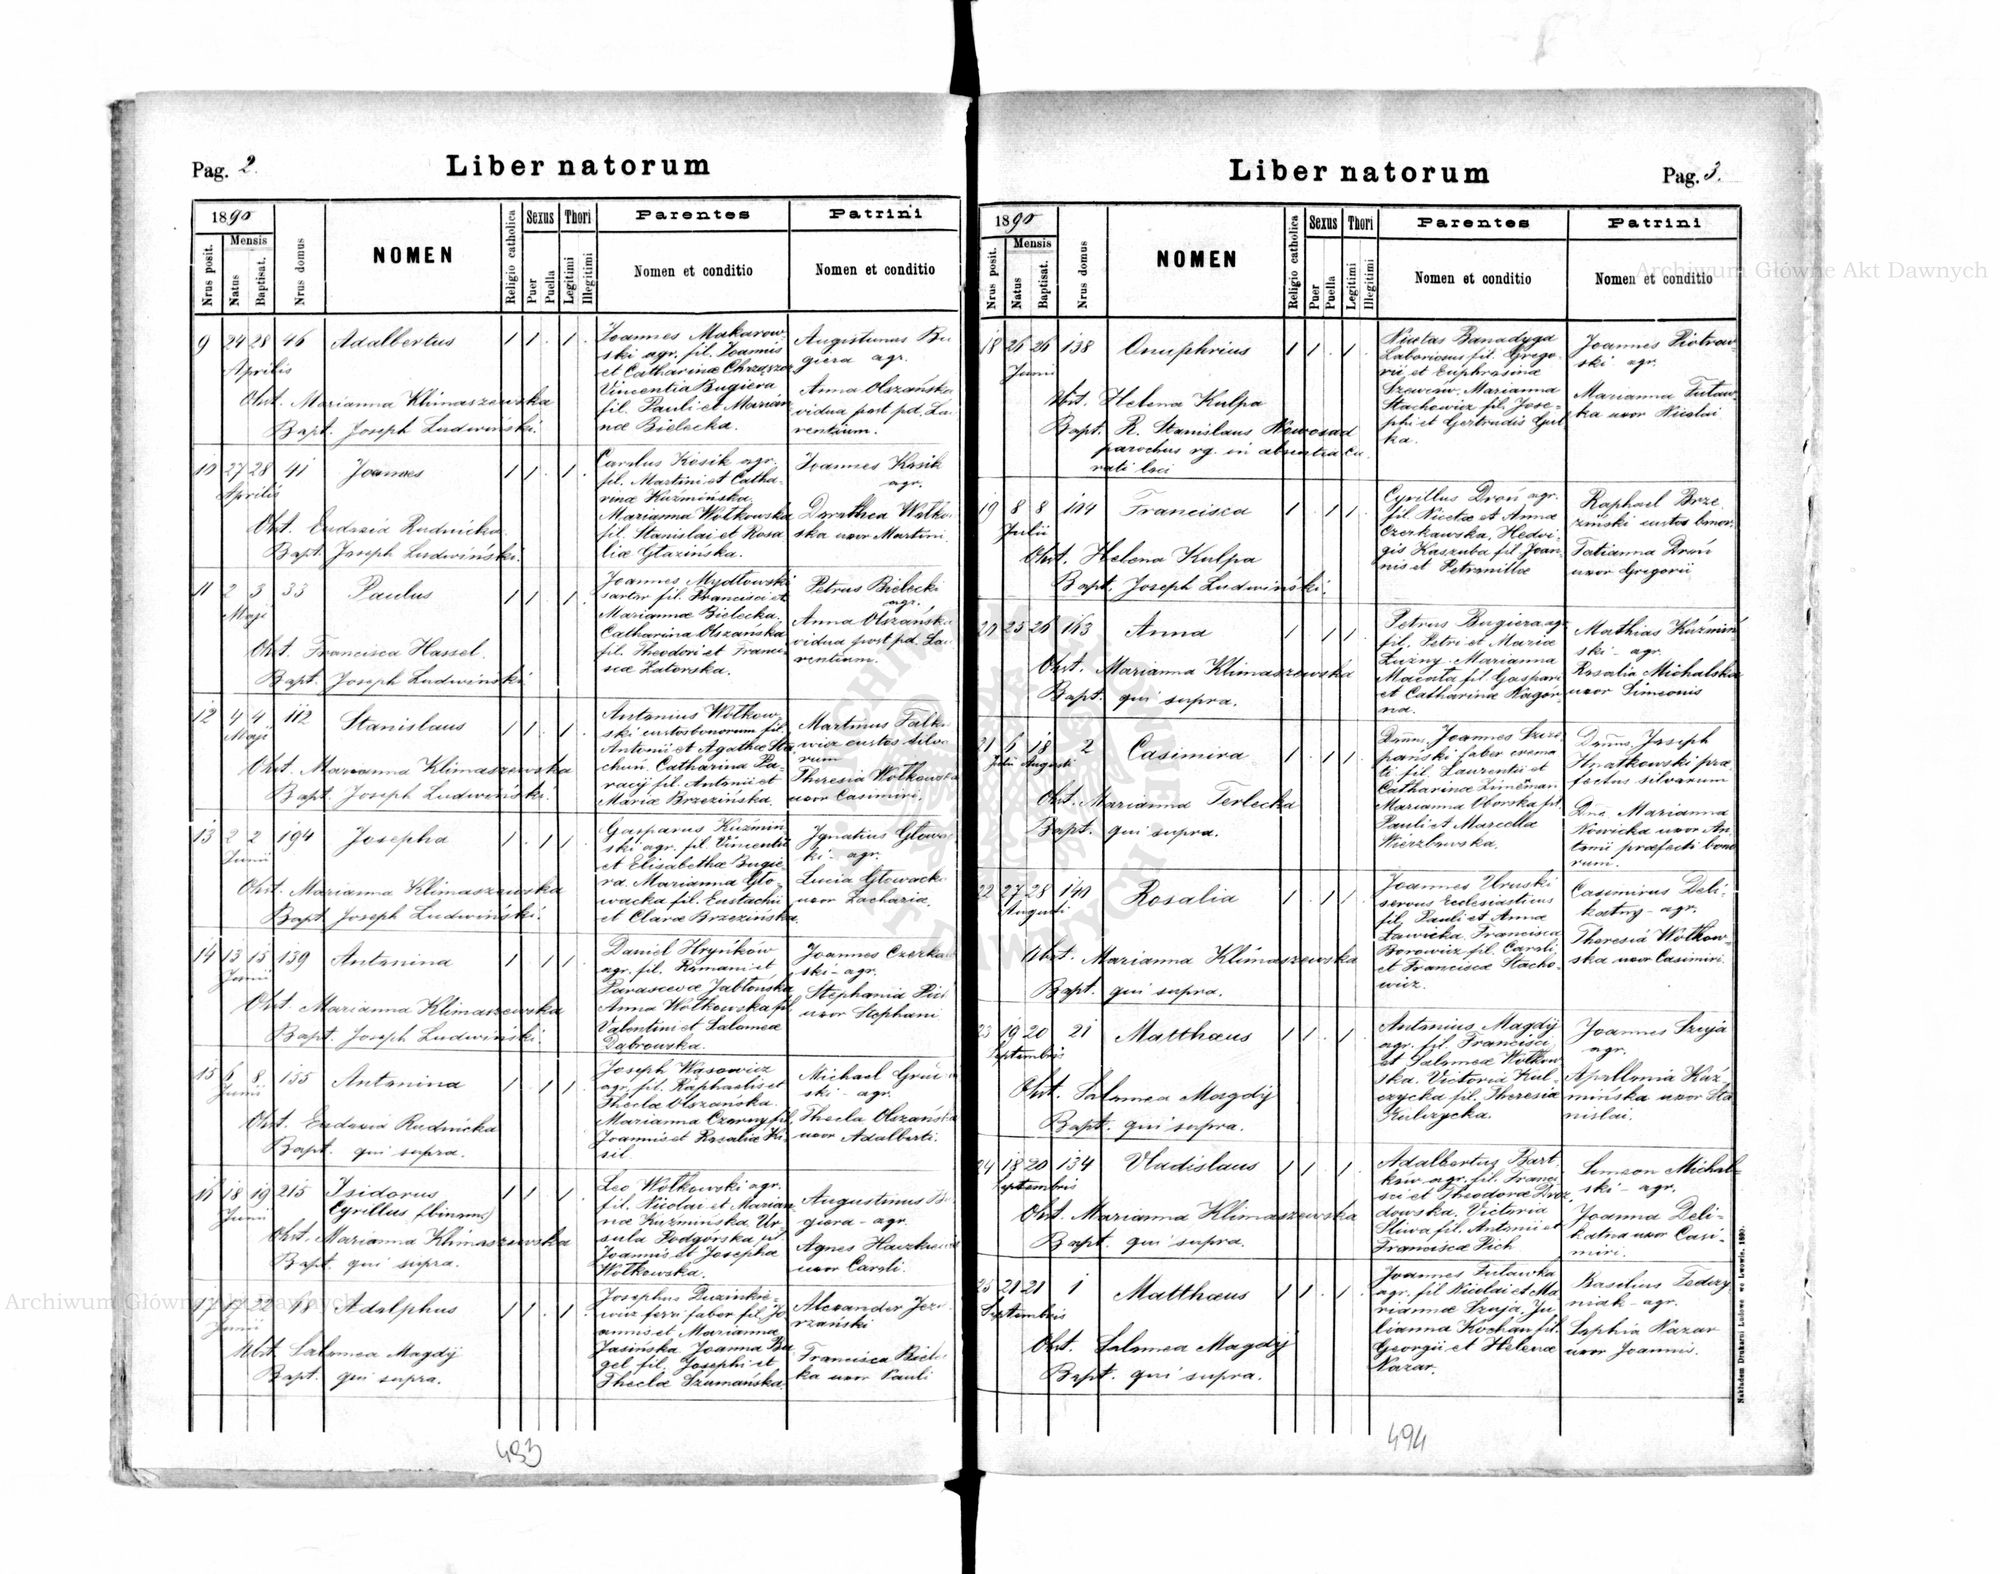 Pag. 2.
Liber natorum
1890
Mensis
Nrus posit.
Natus
Baptisat.
Nrus domus
NOMEN
Religio catholica
Sexus
Puer
Puella
Thori
Legitimi
Illegitimi
Parentes
Nomen et conditio
Patrini
Nomen et conditio
9 24 28 46 Adalbertus 1 1 . 1 .
Aprilis
Obst. Marianna Klimaszewska
Bapt. Joseph Ludwiński.
Joannes Makarow-
ski agr. fil. Joannis
et Catharinæ Chrząszcz
Vincentia Bugiera
fil. Pauli et Marian
næ Bielecka.
Augustinus Bu
giera agr.
Anna Olszańska
vidua post pd. La
rentium.
10 27 28 41 Joannes 1 1 . 1 .
Aprilis
Obst. Eudoxia Rudnicka.
Bapt. Joseph Ludwiński.
Carolus Kosik agr.
fil. Martini et Catha-
rinæ Kuźmińska.
Marianna Wołkowska
fil. Stanislai et Rosa
liæ Głazińska.
Joannes Kosik
agr.
Dorothea Wołko
ska uxor Martini.
11 2 3 33 Paulus 1 1 . 1 .
Maji
Obst. Francisca Hassel.
Bapt. Joseph Ludwiński.
Joannes Mydłowski
sartor fil. Francisci et
Mariannæ Bielecka.
Catharina Olszańska
fil. Theodori et Franci-
scæ Zatorska.
Petrus Bielecki
agr.
Anna Olszańska
vidua post pd. La
rentium.
12 4 4 112 Stanislaus 1 1 . 1 .
Maji
Obst. Marianna Klimaszewska
Bapt. Joseph Ludwiński.
Antonius Wołkow-
ski custos bonorum fil.
Antonii et Agathæ Sta
chuń. Catharina Pa-
racij fil. Antonii et
Mariæ Brzezińska.
Martinus Falk
wicz custos silva
rum
Theresia Wołkowska
uxor Casimiri.
13 2 2 194 Josepha 1 . 1 1 .
Junii
Obst. Marianna Klimaszewska
Bapt. Joseph Ludwiński.
Gasparus Kuźmiń
ski agr. fil. Vincentii
et Elisabethæ Bugie-
ra. Marianna Gło-
wacka fil. Eustachii
et Claræ Brzezińska.
Ignatius Głowac
ki - agr.
Lucia Głowacka
uxor Zachariæ.
14 13 15 139 Antonina 1 . 1 1 .
Junii
Obst. Marianna Klimaszewska
Bapt. Joseph Ludwiński.
Daniel Hryńków
agr. fil. Romani et
Parascevæ Jabłońska
Anna Wołkowska fil.
Valentini et Salomeæ
Dąbrowska.
Joannes Czerkaw
ski - agr.
Stephania Pich
uxor Stephani
15 6 8 155 Antonina 1 . 1 1 .
Junii
Obst. Eudoxia Rudnicka
Bapt. qui supra.
Joseph Wąsowicz
agr. fil. Raphaelis et
Theclæ Olszańska.
Marianna Czerny fil.
Joannis et Rosaliæ Ki
sil
Michael
ski - agr.
Thecla Olszańska
uxor Adalberti.
16 18 19 215 Isidorus 1 1 . 1 .
Junii
Cyrillus (binom.)
Obst. Marianna Klimaszewska
Bapt. qui supra.
Leo Wołkowski agr.
fil. Nicolai et Marian
næ Kuźmińska. Ur-
sula Podgórska fil.
Joannis et Josepha
Wołkowska.
Augustinus Bu
giera - agr.
Agnes
uxor Caroli.
17 17 22 18 Adolphus 1 1 . 1 .
Junii
Obst. Salomea Magdij
Bapt. qui supra.
Josephus
wicz ferri faber fil. Jo
annis et Mariannæ
Jasińska. Joanna Bu
gel fil. Josephi et
Theclæ Szumańska.
Alexander Jezi
rzański
Francisca Biele
ka uxor Pauli
493
Liber natorum
Pag. 3.
1890
Mensis
Nrus posit.
Natus
Baptisat.
Nrus domus
NOMEN
Religio catholica
Sexus
Puer
Puella
Thori
Legitimi
Illegitimi
Parentes
Nomen et conditio
Patrini
Nomen et conditio
18 26 26 138 Onuphrius 1 1 . 1 .
Junii
Obst. Helena Kulpa
Bapt. R. Stanislaus Nowosad
parochus rg. in absentia Cu
rati loci
Nicetas Banadyga
Laboriosus fil. Grego-
rii et Euphrosinæ
Szewców. Marianna
Stachowicz fil. Jose-
phi et Gertrudis Gul
ka.
Joannes Piotrow-
ski agr.
Marianna Futaw-
ka uxor Nicolai
19 8 8 104 Francisca 1 . 1 1 .
Julii
Obst. Helena Kulpa
Bapt. Joseph Ludwiński.
Cyrillus Droń agr.
fil. Nicetæ et Annæ
Czerkawska. Hedvi-
gis Kaszuba fil. Joan-
nis et Petronillæ
Raphael Brze
ziński custos bonor.
Tatianna Droń
uxor Gregorii
20 25 26 143 Anna 1 . 1 1 .
Obst. Marianna Klimaszewska
Bapt. qui supra.
Petrus Bugiera agr
fil. Petri et Mariæ
Łuźny. Marianna
Macała fil. Gaspari
et Catharinæ Nagór-
na.
Mathias Kuźmiń
ski - agr.
Rosalia Michalska
uxor Simeonis
21 6 18 2 Casimira 1 . 1 1 .
Julii Augusti
Obst. Marianna Terlecka
Bapt. qui supra.
Dnus. Joannes Szcze-
pański faber crema
ti fil. Laurentii et
Catharinæ
Marianna Oborska fil.
Pauli et Marcella
Wierzbowska.
Dnus. Joseph
Hnatkowski præ
fectus silvarum
Dna. Marianna
Nowicka uxor An-
tonii præfecti bono
rum.
22 27 28 140 Rosalia 1 . 1 1 .
Augusti
Obst. Marianna Klimaszewska
Bapt. qui supra.
Joannes Uruski
servus Ecclesiasticus
fil. Pauli et Annæ
Ławicka. Francisca
Borowicz fil. Caroli
et Franciscæ Stacho-
wicz.
Casimirus Deli-
katny - agr.
Theresia Wołkow-
ska uxor Casimiri.
23 19 20 21 Matthæus 1 1 . 1 .
Septembris
Obst. Salomea Magdij
Bapt. qui supra.
Antonius Magdij
agr. fil. Francisci
et Salomeæ Wołkow
ska. Victoria Kul-
czycka fil. Theresiæ
Kulczycka.
Joannes Szuja
agr.
Apollonia Kuź-
mińska uxor Sta
nislai.
24 18 20 134 Vladislaus 1 1 . 1 .
Septembris
Obst. Marianna Klimaszewska
Bapt. qui supra.
Adalbertus Bart-
ków agr. fil. Franci-
sci et Theodoræ Broz
dowska. Victoria
Śliwa fil. Antonii et
Franciscæ Pich
Simeon Michal-
ski - agr.
Joanna Deli-
katna uxor Casi-
miri.
25 21 21 1 Matthæus 1 1 . 1 .
Septembris
Obst. Salomea Magdij
Bapt. qui supra.
Joannes Futawka
agr. fil Nicolai et Ma
riannæ Szuja. Ju
lianna Kochan fil.
Georgii et Helenæ
Nazar.
Basilius Fedczy
niak - agr.
Sophia Nazar
uxor Joannis.
Nakładem Drukarni Ludowe we Lwowie. 1890.
494
Archiwum Główne Akt Dawnych
Archiwum Główne Akt Dawnych